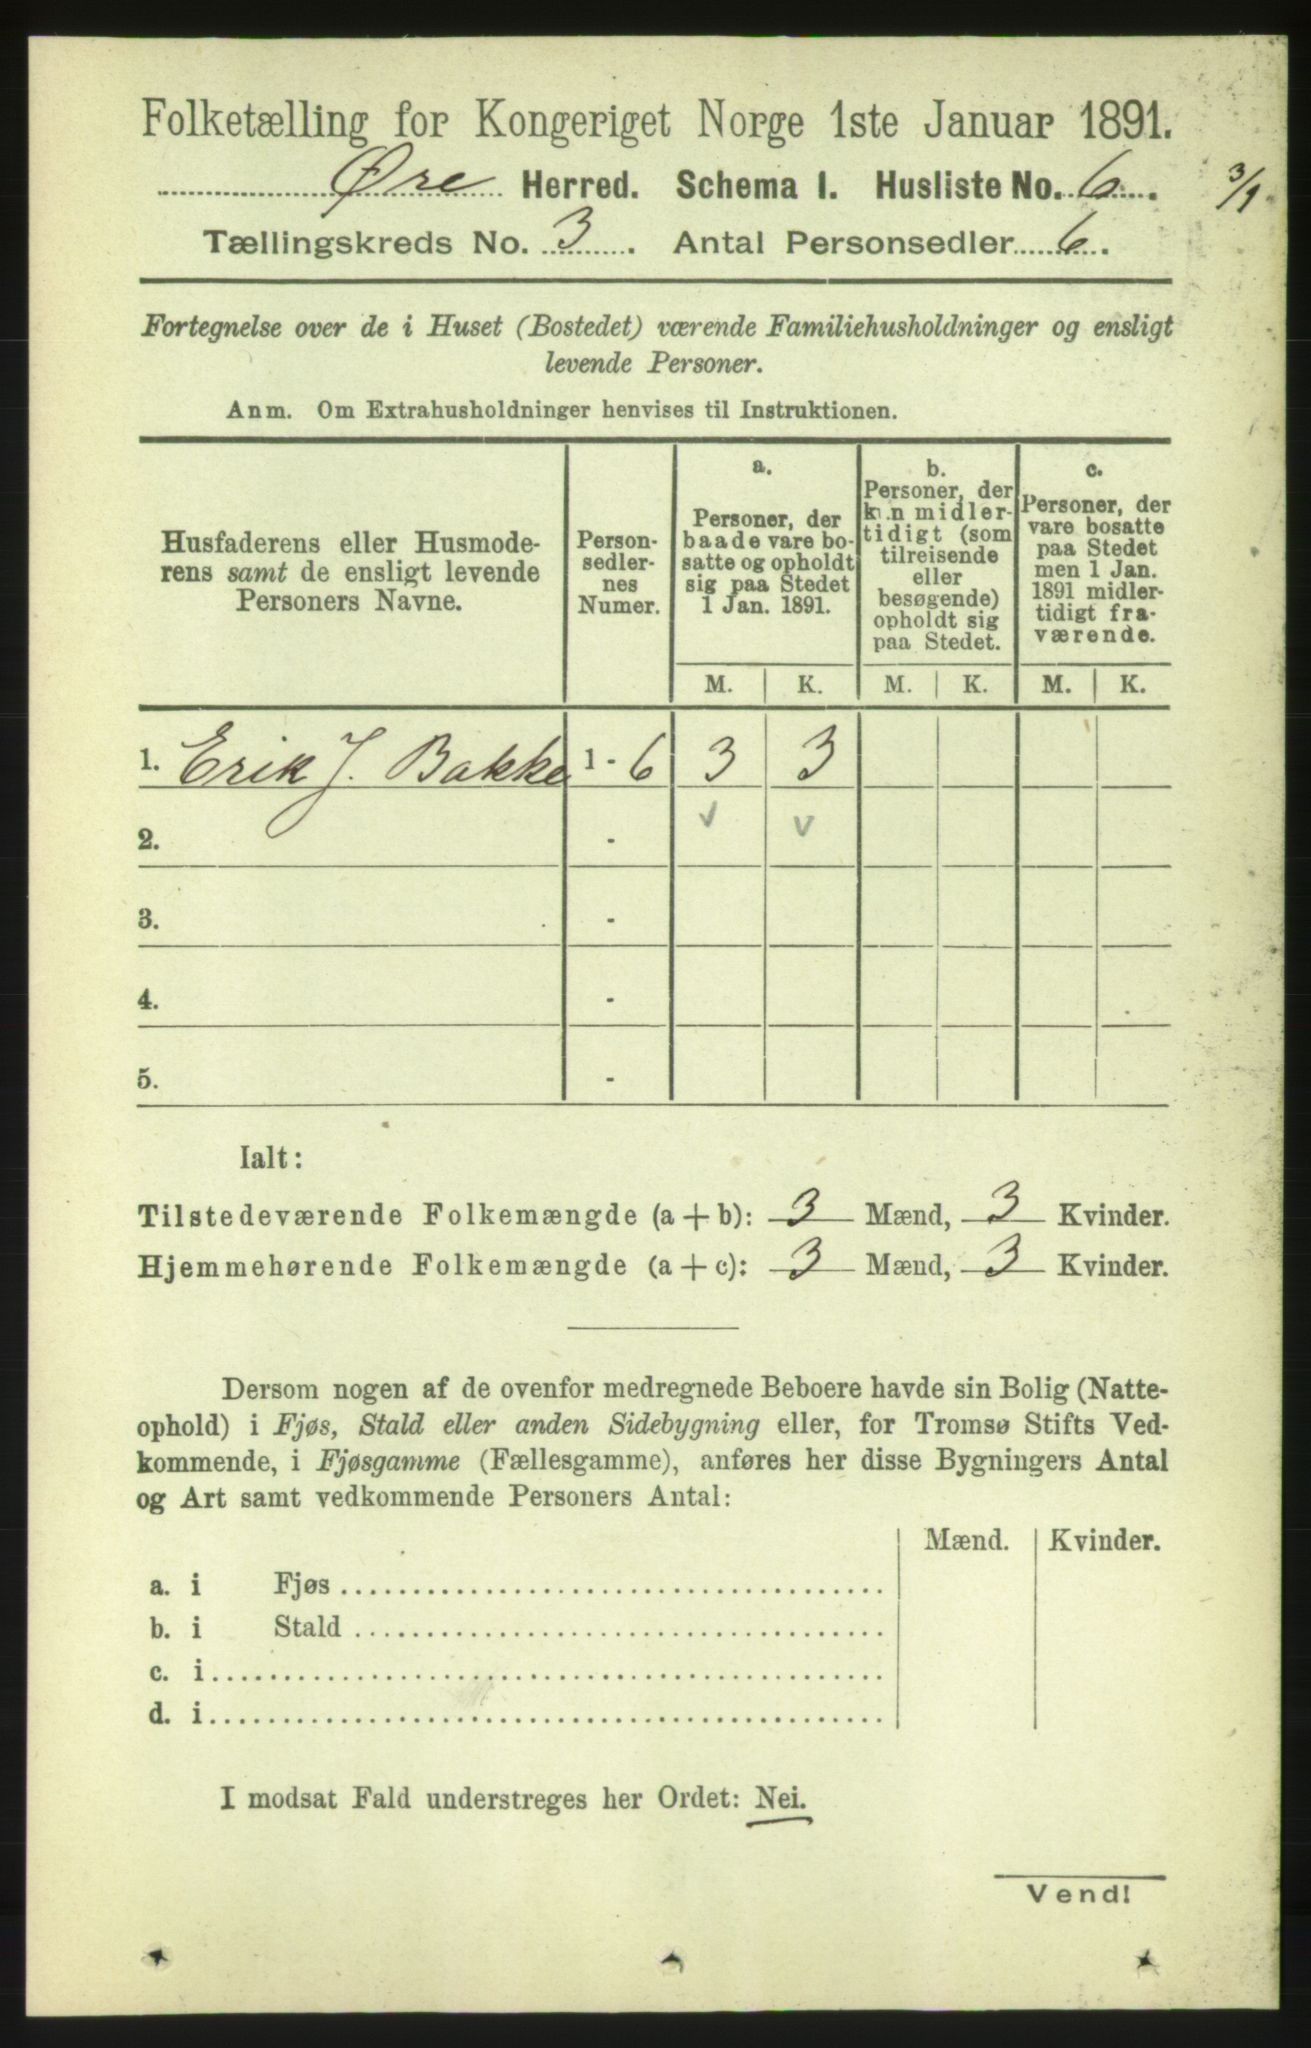 Folketælling for Kongeriget Norge 1ste Januar 1891.
Øre Herred. Schema I. Husliste No. 6.
3/1
Tællingskreds No. 3. Antal Personsedler 6.
Fortegnelse over de i Huset (Bostedet) værende Familiehusholdninger og ensligt
levende Personer.
Anm. Om Extrahusholdninger henvises til Instruktionen.
Husfaderens eller Husmode-
rens samt de ensligt levende
Personers Navne.
Person-
sedler-
nes
Numer.
a.
Personer, der
baade vare bo-
satte og opholdt
sig paa Stedet
1 Jan. 1891.
b.
Personer, der
kun midler-
tidigt (som
tilreisende
eller
besøgende)
opholdt sig
paa Stedet.
c.
Personer, der
vare bosatte
paa Stedet
men 1 Jan.
1891 midler-
tidigt fra-
værende.
M. K. M. K. M. K.
1. Erik J. Bakke 1 - 6 3 3
2. -
3. -
4. -
5. -
Ialt:
Tilstedeværende Folkemængde (a + b): 3 Mænd, 3 Kvinder.
Hjemmehørende Folkemængde (a + c): 3 Mænd, 3 Kvinder.
Dersom nogen af de ovenfor medregnede Beboere havde sin Bolig (Natte-
ophold) i Fjøs, Stald eller anden Sidebygning eller, for Tromsø Stifts Ved-
kommende, i Fjøsgamme (Fællesgamme), anføres her disse Bygningers Antal
og Art samt vedkommende Personers Antal:
Mænd. Kvinder.
a. i Fjøs
b. i Stald
c. i
d. i
I modsat Fald understreges her Ordet: Nei.
Vend!